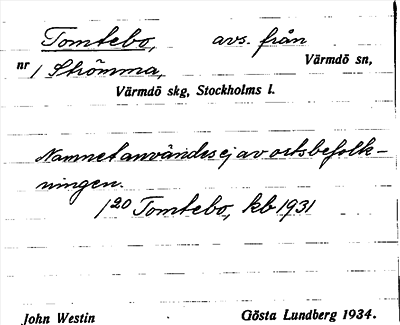 Tomtebo, avs. från
nr 1 Strömma, Värmdö sn,
Värmdö skg, Stockholms l.
Namnet användes ej av ortsbefolk-
ningen.
1²⁰ Tomtebo, kb 1931
John Westin Gösta Lundberg 1934.